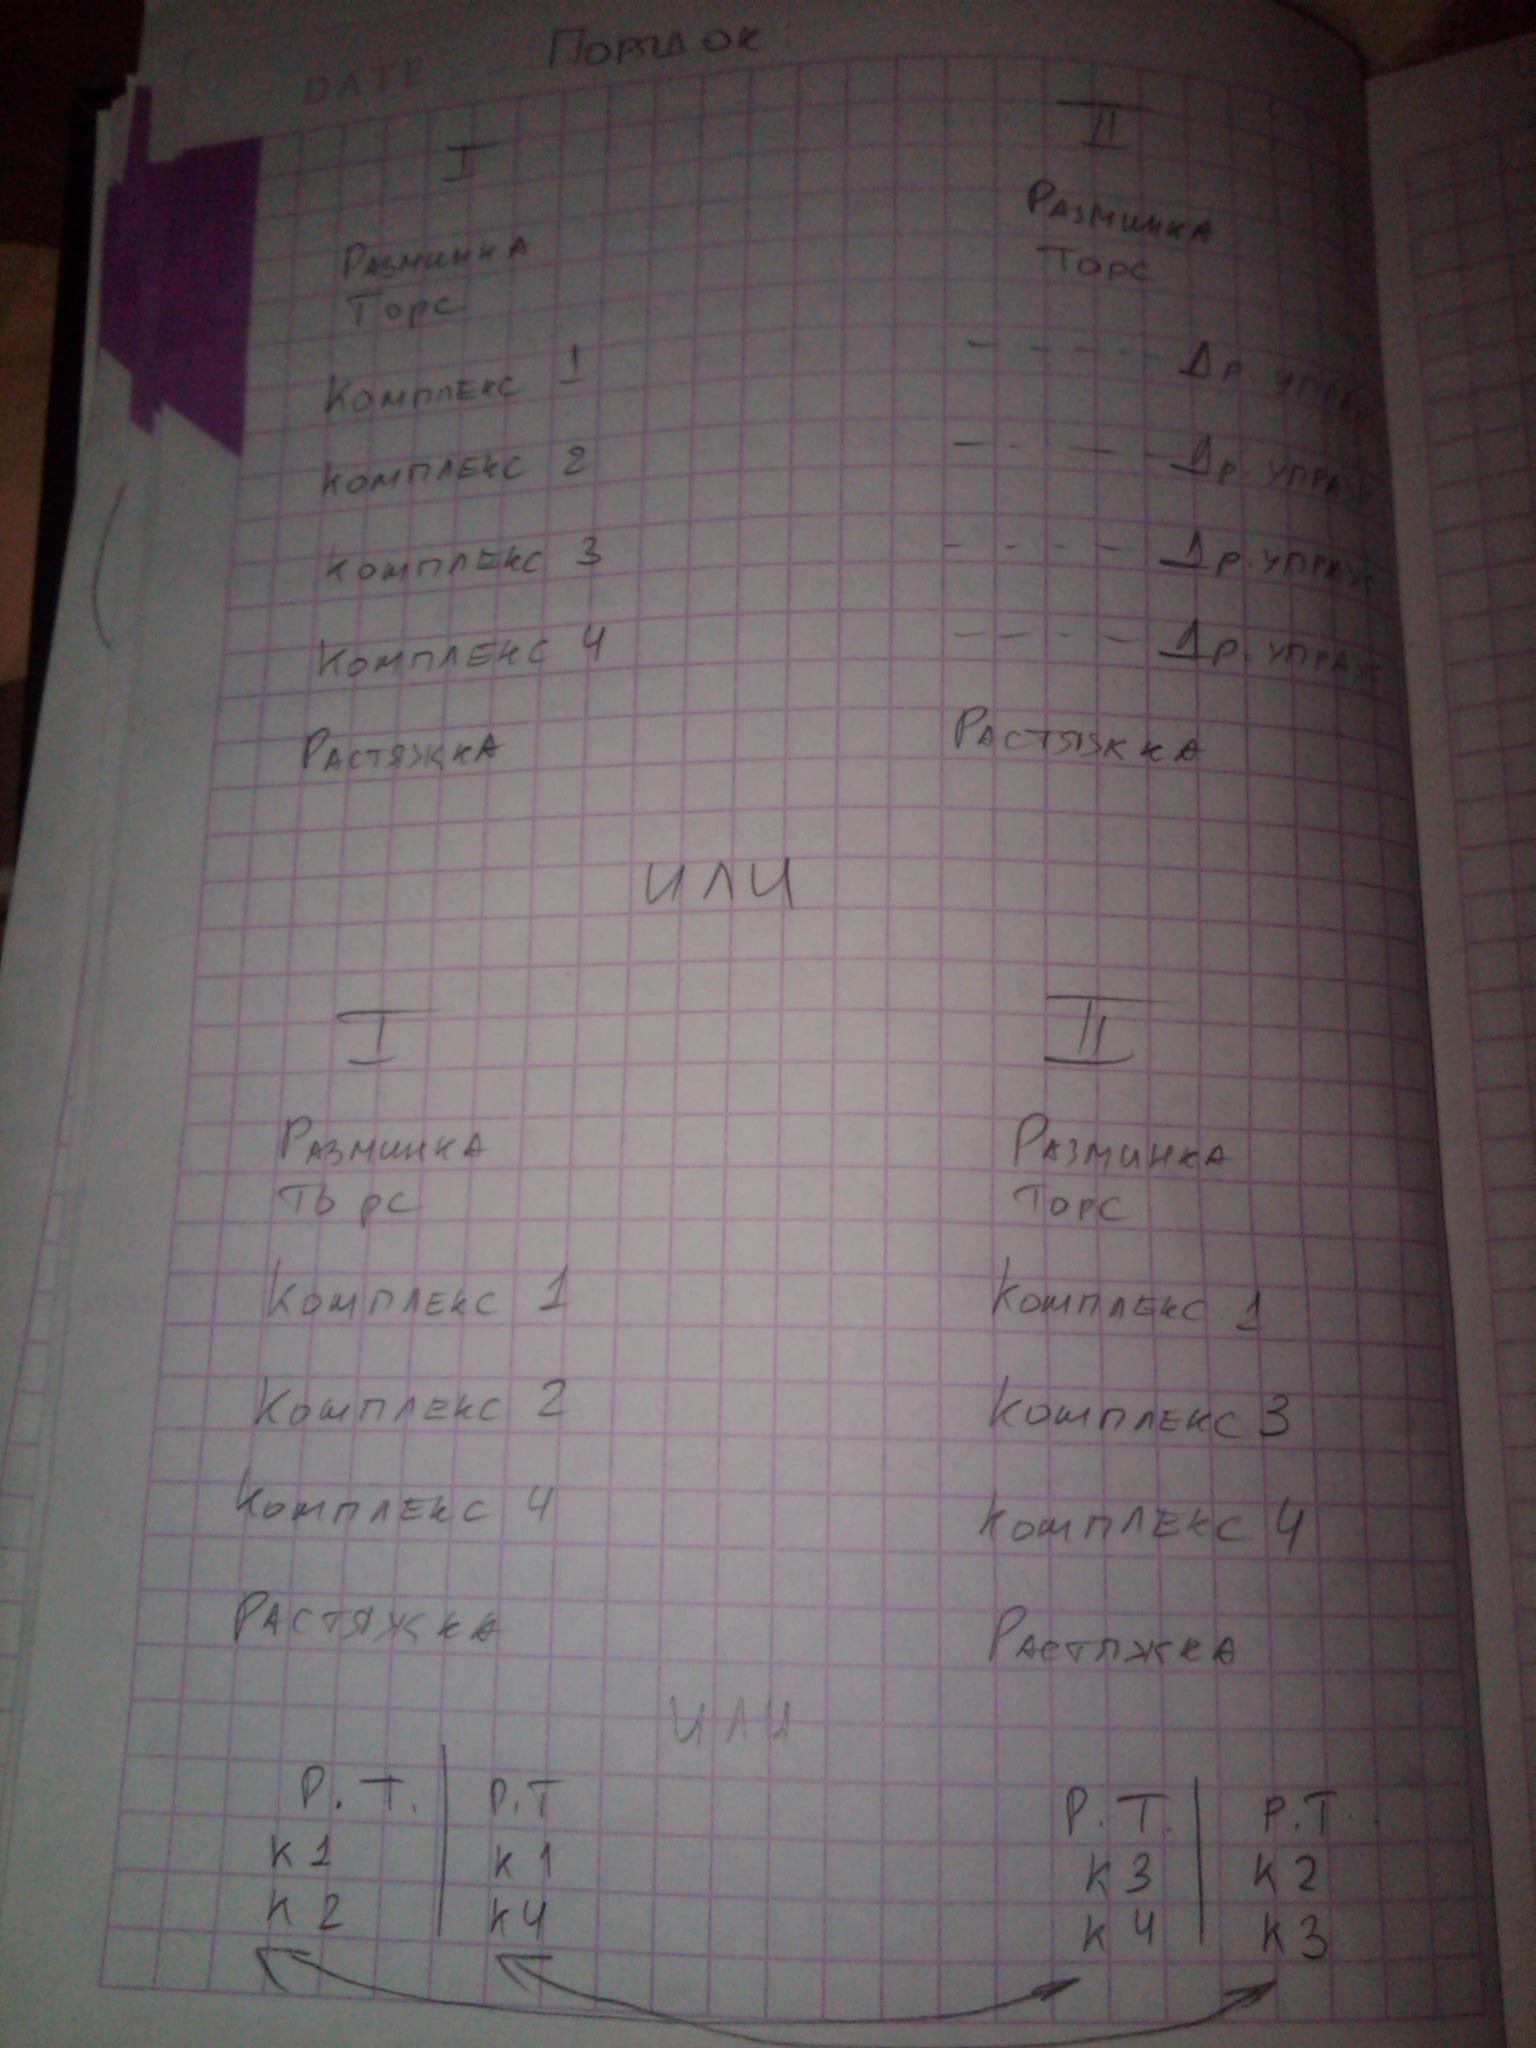 DATE
Порядок
I
Разминка
Торс
Комплекс 1
Комплекс 2
Комплекс 3
Комплекс 4
Растяжка
II
Разминка
Торс
- - - - Др.
- - - - Др. упраж
- - - - Др. упраж
- - - - Др. упраж
Растяжка
или
I
Разминка
Торс
Комплекс 1
Комплекс 2
Комплекс 4
Растяжка
II
Разминка
Торс
Комплекс 1
Комплекс 3
Комплекс 4
Растяжка
или
Р. Т. | Р. Т
К 1 | К 1
К 2 | К 4
Р. Т. | Р. Т.
К 3 | К 2
К 4 | К 3